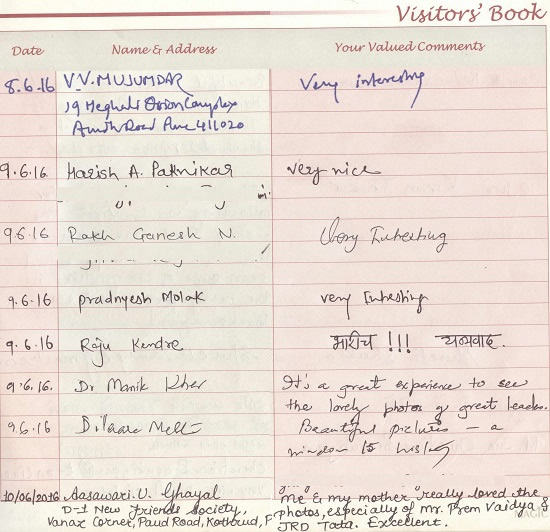 Visitors' Book
Date Name & Address Your Valued Comments
8.6.16 V.V. MUJUMDAR Very interesting
19 Meghali Orion Complex
Aundh Road Pune 411020
9.6.16 Harish A. Patnikar very nice
9.6.16 Rakh Ganesh N. Very Intresting
9.6.16 Pradnyesh Molak very Intresting
9.6.16 Raju Kendre भारीच !!! धन्यवाद.
9.6.16. Dr Manik Kher It's a great experience to see
the lovely photos of great leaders.
9.6.16 Beautiful pictures - a
window to history
10/06/2016 Aasawari.U. Ghayal Me & my mother really loved the
D-1 New Friends Society, photos, especially of Mr. Prem Vaidya &
Vanaz Corner, Paud Road, Kothrud, JRD Tata. Excellent.